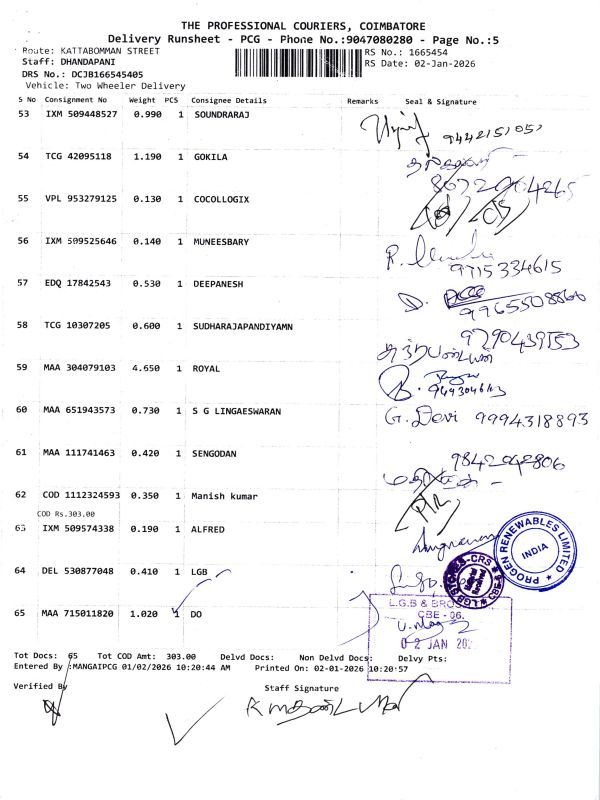 THE PROFESSIONAL COURIERS, COIMBATORE
Delivery Runsheet - PCG - Phone No.:9047080280 - Page No.:5
Route: KATTABOMMAN STREET
RS No.: 1665454
Staff: DHANDAPANI
RS Date: 02-Jan-2026
DRS No.: DCJB166545405
Vehicle: Two Wheeler Delivery
S No Consignment No Weight PCS Consignee Details Remarks Seal & Signature
53 IXM 509448527 0.990 1 SOUNDRARAJ
54 TCG 42095118 1.190 1 GOKILA
55 VPL 953279125 0.130 1 COCOLLOGIX
56 IXM 509525646 0.140 1 MUNEESBARY
9715334615
57 EDQ 17842543 0.530 1 DEEPANESH
9965508866
58 TCG 10307205 0.600 1 SUDHARAJAPANDIYAMN
9790439153
59 MAA 304079103 4.650 1 ROYAL
60 MAA 651943573 0.730 1 S G LINGAESWARAN
G. Devi 9994318893
61 MAA 111741463 0.420 1 SENGODAN
9842042806
62 COD 1112324593 0.350 1 Manish kumar
COD Rs.303.00
63 IXM 509574338 0.190 1 ALFRED
PROGEN RENEWABLES LIMITED
INDIA
64 DEL 530877048 0.410 1 LGB
65 MAA 715011820 1.020 1 DO
L.G.B & BROS
CBE - 06.
02 JAN 202
Tot Docs: 65 Tot COD Amt: 303.00 Delvd Docs: Non Delvd Docs: Delvy Pts:
Entered By :MANGAIPCG 01/02/2026 10:20:44 AM Printed On: 02-01-2026 10:20:57
Verified By
Staff Signature